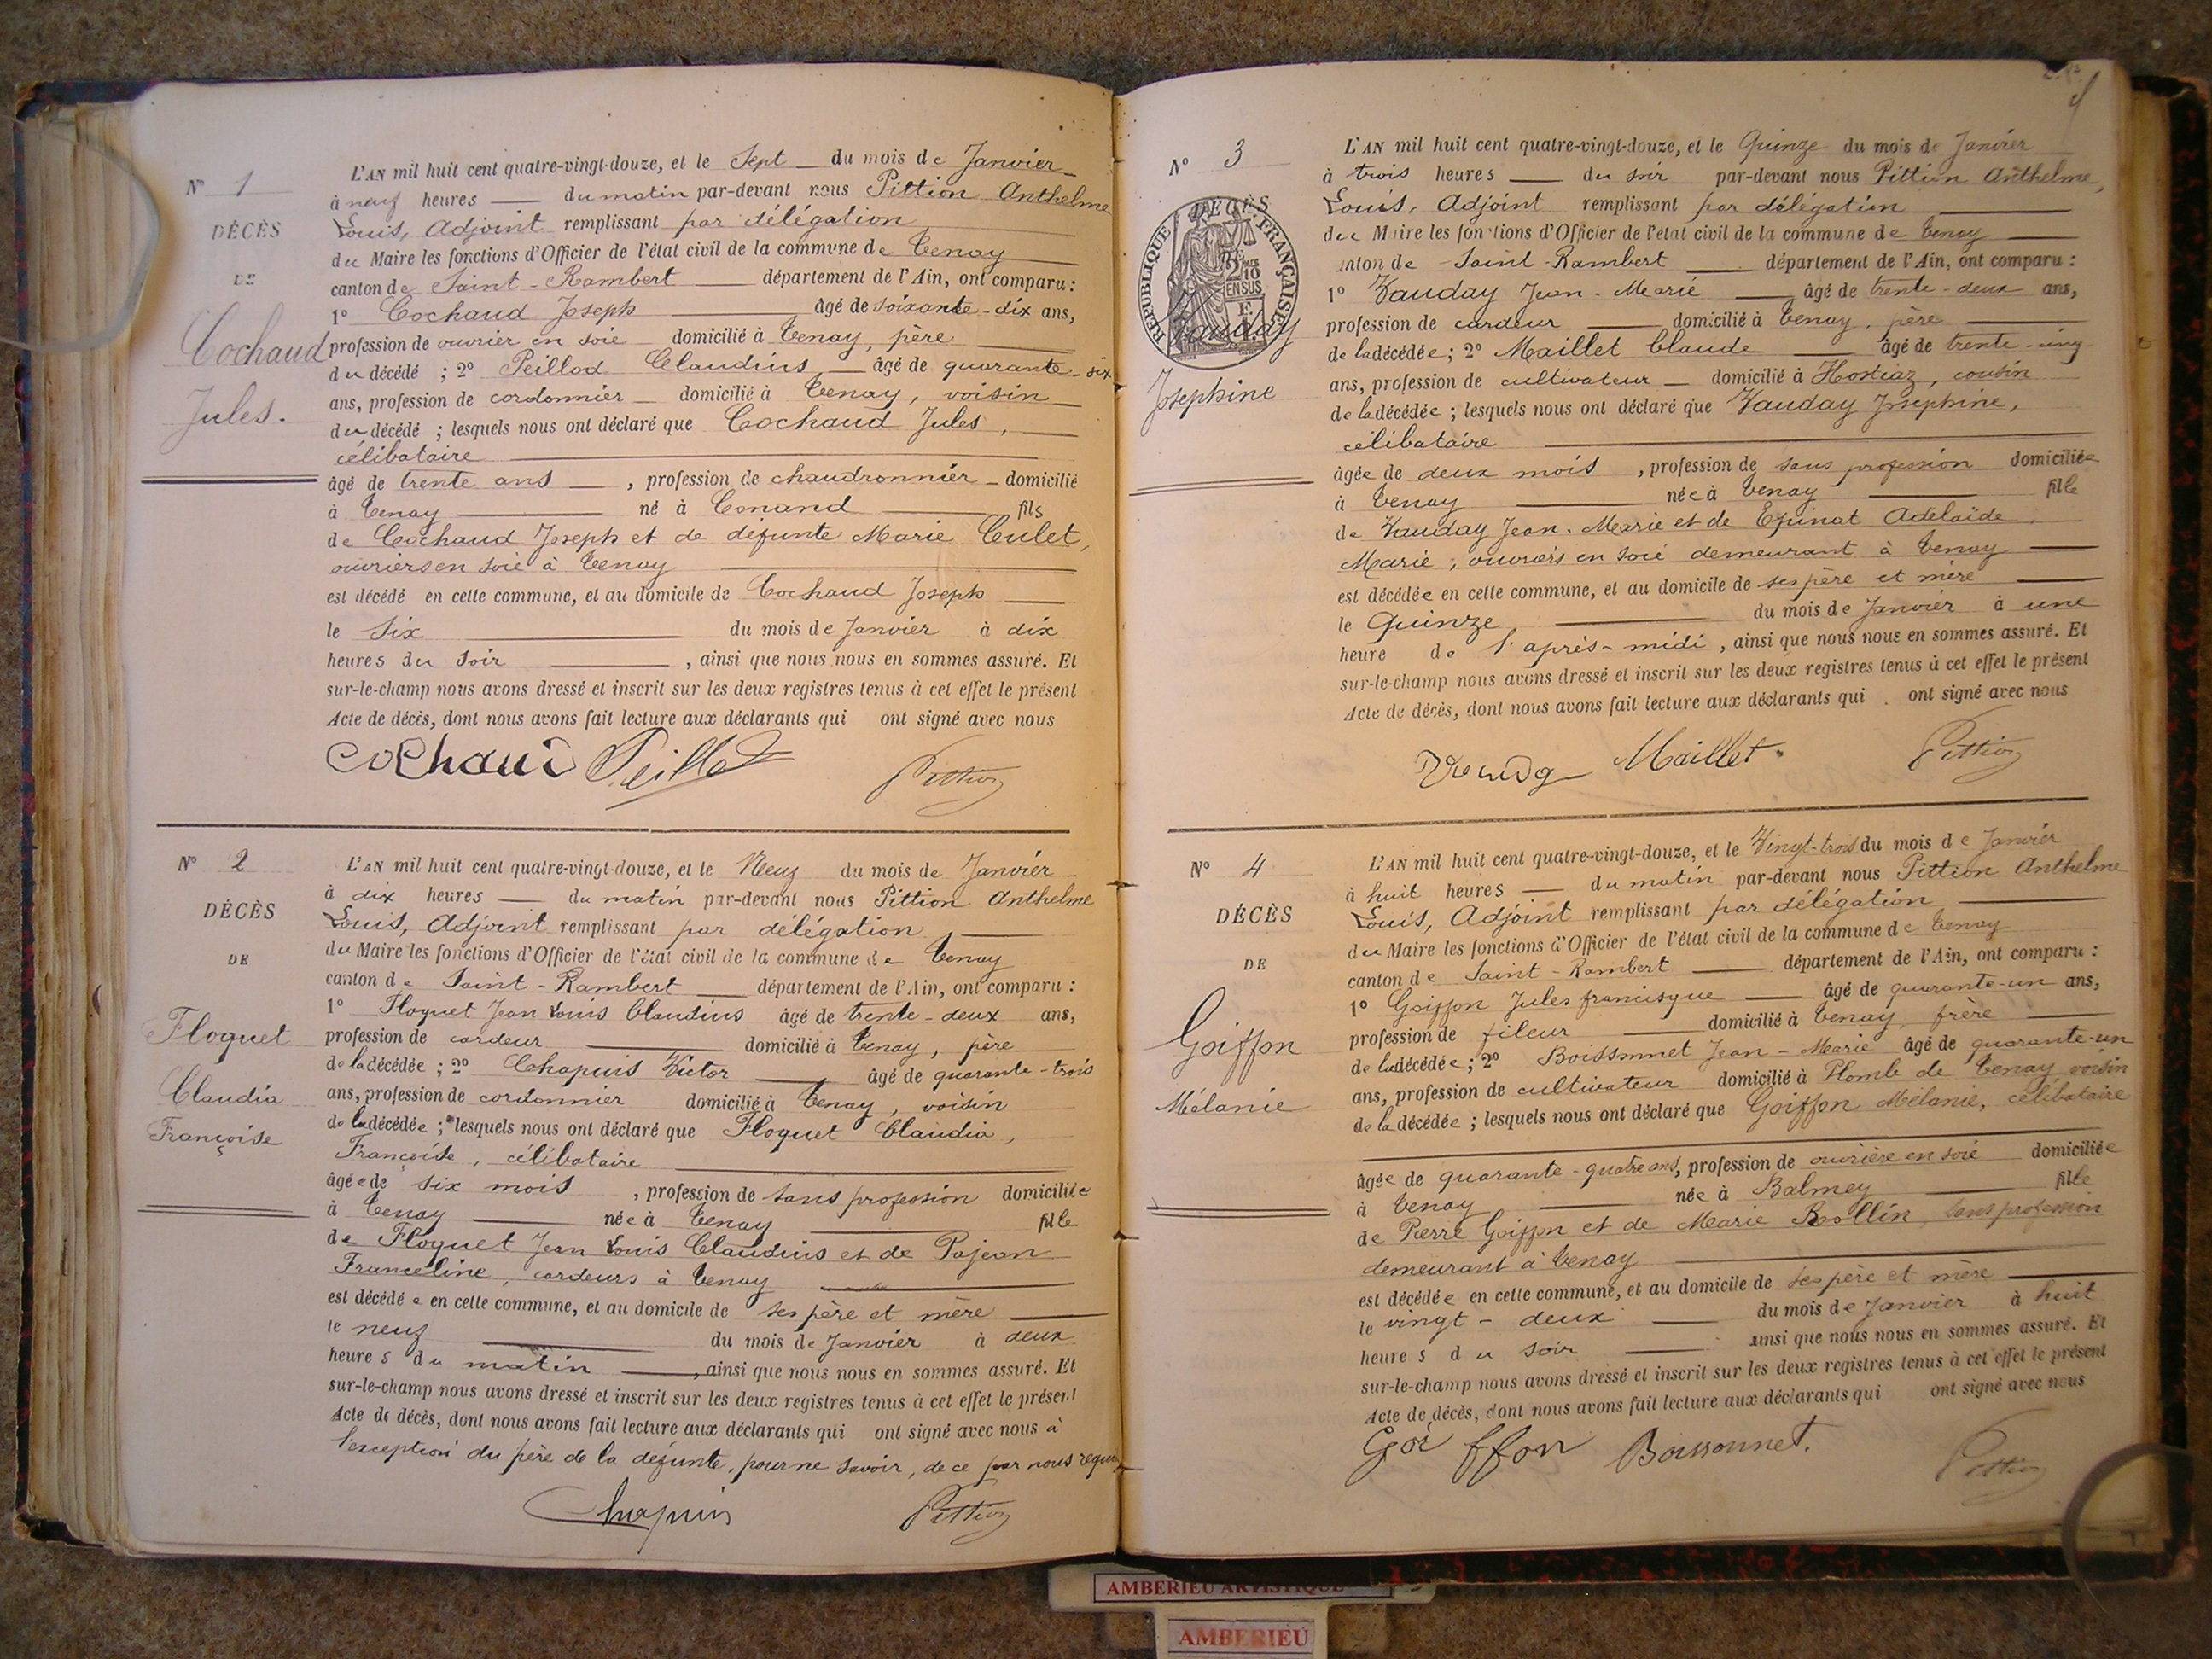 N° 1
DÉCÈS
DE
Cochaud
Jules.
L'AN mil huit cent quatre-vingt-douze, et le Sept du mois de Janvier
à neuf heures du matin par-devant nous Pittion Anthelme
Louis, Adjoint remplissant par délégation
du Maire les fonctions d'Officier de l'état civil de la commune de Tenay
canton de Saint-Rambert département de l'Ain, ont comparu :
1° Cochaud Joseph âgé de soixante-dix ans,
profession de ouvrier en soie domicilié à Tenay, père
du décédé ; 2° Peillod Claudius âgé de quarante-six
ans, profession de cordonnier domicilié à Tenay, voisin
du décédé ; lesquels nous ont déclaré que Cochaud Jules,
célibataire
âgé de trente ans, profession de chaudronnier domicilié
à Tenay né à Conand fils
de Cochaud Joseph et de défunte Marie Culet,
ouvriers en soie à Tenay
est décédé en cette commune, et au domicile de Cochaud Joseph
le Six du mois de Janvier à dix
heures du soir, ainsi que nous nous en sommes assuré. Et
sur-le-champ nous avons dressé et inscrit sur les deux registres tenus à cet effet le présent
Acte de décès, dont nous avons fait lecture aux déclarants qui ont signé avec nous
Cochaud Peillod Pittion
N° 2
DÉCÈS
DE
Floquet
Claudia
Françoise
L'AN mil huit cent quatre-vingt-douze, et le Neuf du mois de Janvier
à dix heures du matin par-devant nous Pittion Anthelme
Louis, Adjoint remplissant par délégation
du Maire les fonctions d'Officier de l'état civil de la commune de Tenay
canton de Saint-Rambert département de l'Ain, ont comparu :
1° Floquet Jean Louis Claudius âgé de trente-deux ans,
profession de cardeur domicilié à Tenay, père
de la décédée ; 2° Chapuis Victor âgé de quarante-trois
ans, profession de cordonnier domicilié à Tenay, voisin
de la décédée ; lesquels nous ont déclaré que Floquet Claudia,
Françoise, célibataire
âgée de six mois, profession de sans profession domiciliée
à Tenay née à Tenay fille
de Floquet Jean Louis Claudius et de Pojean
Franceline, cardeurs à Tenay
est décédée en cette commune, et au domicile de ses père et mère
le neuf du mois de Janvier à deux
heures du matin, ainsi que nous nous en sommes assuré. Et
sur-le-champ nous avons dressé et inscrit sur les deux registres tenus à cet effet le présent
Acte de décès, dont nous avons fait lecture aux déclarants qui ont signé avec nous à
l'exception du père de la défunte, pour ne savoir, de ce par nous requis
Chapuis Pittion
N° 3
DÉCÈS
RÉPUBLIQUE FRANÇAISE
2/10 EN SUS
Vauday
Josephine
L'AN mil huit cent quatre-vingt-douze, et le Quinze du mois de Janvier
à trois heures du soir par-devant nous Pittion Anthelme,
Louis, Adjoint remplissant par délégation
du Maire les fonctions d'Officier de l'état civil de la commune de Tenay
canton de Saint-Rambert département de l'Ain, ont comparu :
1° Vauday Jean-Marie âgé de trente-deux ans,
profession de cardeur domicilié à Tenay, père
de la décédée ; 2° Maillet Claude âgé de trente-cinq
ans, profession de cultivateur domicilié à Hostiaz, cousin
de la décédée ; lesquels nous ont déclaré que Vauday Josephine,
célibataire
âgée de deux mois, profession de sans profession domiciliée
à Tenay née à Tenay fille
de Vauday Jean-Marie et de Epinat Adelaïde
Marie, ouvriers en soie demeurant à Tenay
est décédée en cette commune, et au domicile de ses père et mère
le Quinze du mois de Janvier à une
heure de l'après-midi, ainsi que nous nous en sommes assuré. Et
sur-le-champ nous avons dressé et inscrit sur les deux registres tenus à cet effet le présent
Acte de décès, dont nous avons fait lecture aux déclarants qui ont signé avec nous
Maillet Pittion
N° 4
DÉCÈS
DE
Goiffon
Mélanie
L'AN mil huit cent quatre-vingt-douze, et le Vingt-trois du mois de Janvier
à huit heures du matin par-devant nous Pittion Anthelme
Louis, Adjoint remplissant par délégation
du Maire les fonctions d'Officier de l'état civil de la commune de Tenay
canton de Saint-Rambert département de l'Ain, ont comparu :
1° Goiffon Jules francisque âgé de quarante-un ans,
profession de fileur domicilié à Tenay, frère
de la décédée ; 2° Boissonnet Jean-Marie âgé de quarante-un
ans, profession de cultivateur domicilié à Plomb de Tenay voisin
de la décédée ; lesquels nous ont déclaré que Goiffon Mélanie, célibataire
âgée de quarante-quatre ans, profession de ouvrière en soie domiciliée
à Tenay née à Balmey fille
de Pierre Goiffon et de Marie Brollin, sans profession
demeurant à Tenay
est décédée en cette commune, et au domicile de ses père et mère
le vingt-deux du mois de Janvier à huit
heures du soir ainsi que nous nous en sommes assuré. Et
sur-le-champ nous avons dressé et inscrit sur les deux registres tenus à cet effet le présent
Acte de décès, dont nous avons fait lecture aux déclarants qui ont signé avec nous
Goiffon Boissonnet. Pittion
AMBERIEU ARTISTIQUE
AMBERIEU